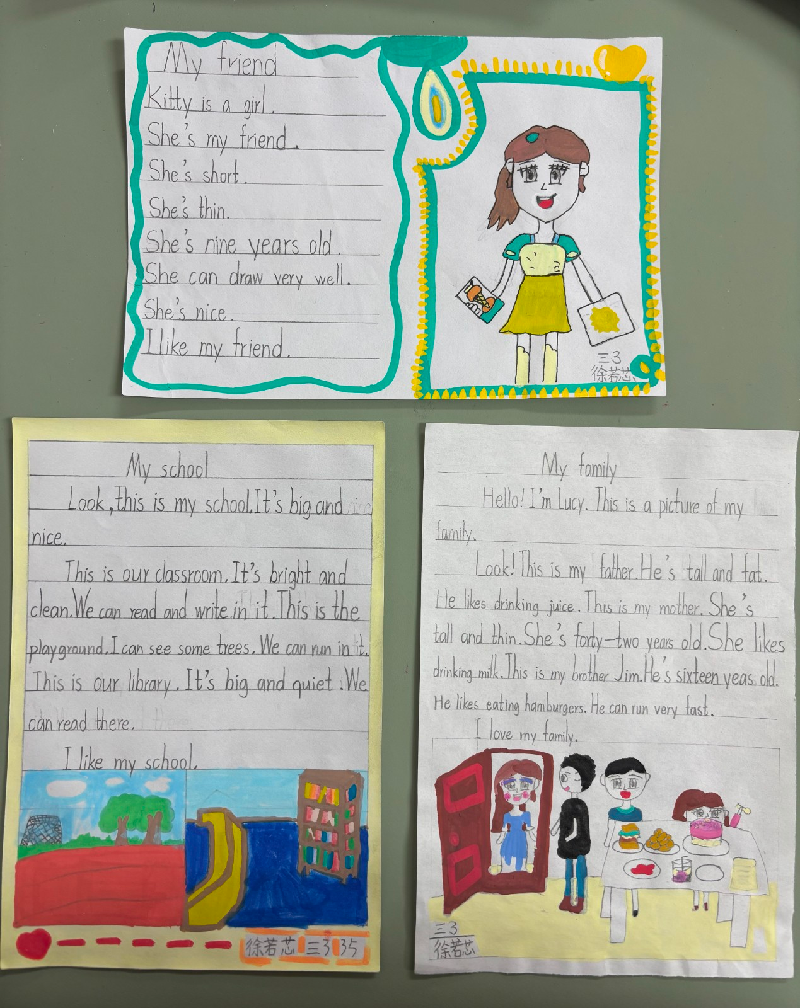 My friend
Kitty is a girl.
She's my friend.
She's short.
She's thin.
She's nine years old.
She can draw very well.
She's nice.
I like my friend.
三3
徐若芯
My school
Look, this is my school. It's big and
nice.
This is our classroom. It's bright and
clean. We can read and write in it. This is the
playground. I can see some trees. We can run in it.
This is our library. It's big and quiet. We
can read there.
I like my school.
徐若芯 三3 35
My family
Hello! I'm Lucy. This is a picture of my
family.
Look! This is my father. He's tall and fat.
He likes drinking juice. This is my mother. She's
tall and thin. She's forty-two years old. She likes
drinking milk. This is my brother Jim. He's sixteen yeas old.
He likes eating hamburgers. He can run very fast.
I love my family.
三3
徐若芯